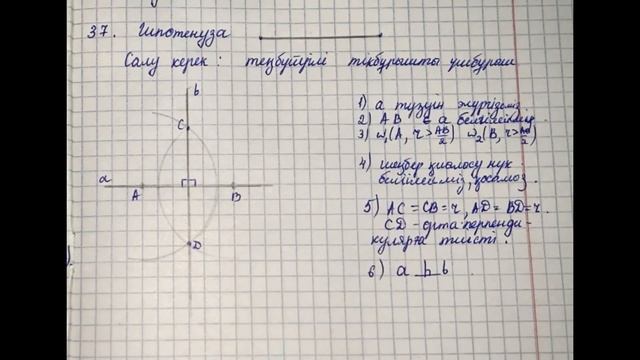 37. Гипотенуза
Салу керек: теңбүйірлі тікбұрышты үшбұрыш
b
C
a
A
B
D
1) a түзуін жүргіземіз
2) AB ∈ a белгілейміз
3) ω₁(A, r > AB/2) ω₂(B, r > AB/2)
4) шеңбер қиылосу нук
белгілейміз, қосамоз.
5) AC = CB = r, AD = BD = r.
CD - орта перпенди-
кулярға тиісті.
6) a ⊥ b